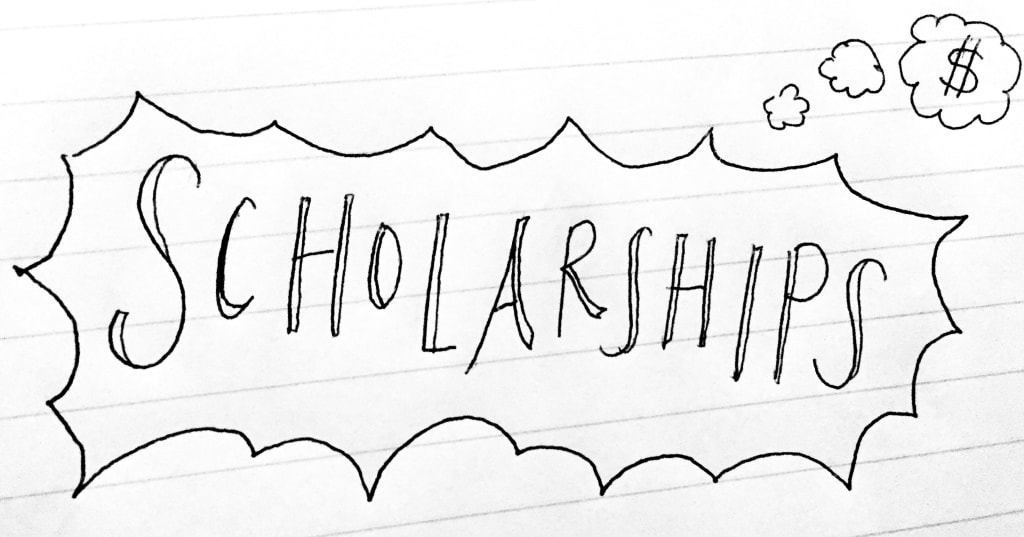 $
SCHOLARSHIPS